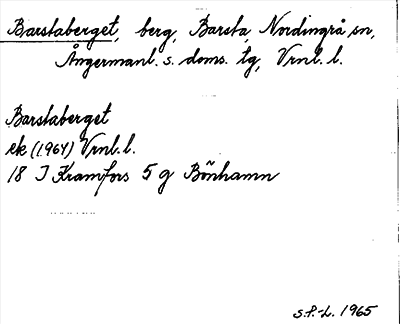 Barstaberget, berg, Barsta, Nordingrå sn,
Ångermanl. s. doms. tg, Vrnl. l.
Barstaberget
ek (1964) Vrnl. l.
18 I Kramfors 5 g Bönhamn
S.P.-L. 1965